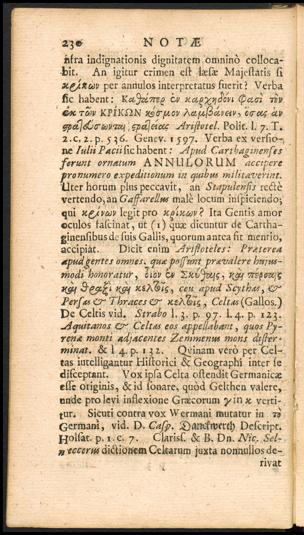 230 NOTÆ
infra indignationis dignitatem omninò colloca-
bit. An igitur crimen est læsæ Majestatis si
κρίκων per annulos interpretatus fuerit? Verba
sic habent: Καθάπερ ἐν καρχηδόνι Φασὶ τὸν
ἐκ τῶν ΚΡΙΚΩΝ κόσμον λαμβάνειν, ὅσας ἂν
στρατεύσωνται στρατείας Aristotel. Polit. l. 7. T.
2. c. 2. p. 536. Genev. 1597. Verba ex versio-
ne Iulii Pacii sic habent: Apud Carthaginenses
ferunt ornatum ANNULORUM accipere
pro numero expeditionum in quibus militaverint.
Uter horum plus peccavit, an Stapulensis rectè
vertendo, an Gaffarellus malè locum inspiciendo;
qui κρίνων legit pro κρίκων? Ita Gentis amor
oculos fascinat, ut (1) quæ dicuntur de Cartha-
ginensibus de suis Gallis, quorum antea fit mentio,
accipiat. Dicit enim Aristoteles: Preterea
apud gentes omnes, quæ possunt prævalere hujus-
modi honoratur, οἷον ἐν Σκύθαις, καὶ πέρσαις
καὶ θρᾳξὶ καὶ κελτοῖς, ceu apud Scythas, &
Persas & Thraces & κελτοῖς, Celtas (Gallos.)
De Celtis vid. Strabo l. 3. p. 97. l. 4. p. 123.
Aquitanos & Celtas eos appellabant, quos Py-
renæ monti adjacentes Zemmenus mons dister-
minat. & l 4. p. 132. Qvinam verò per Cel-
tas intelligantur Historici & Geographi inter se
disceptant. Vox ipsa Celta ostendit Germanicæ
esse originis, & id sonare, quòd Gelthen valere,
unde pro levi inflexione Græcorum γ in κ verti-
tur. Sicuti contra vox Wermani mutatur in το
Germani, vid. D. Casp. Danckwerth Descript.
Holsat. p. 1. c. 7. Clariss. & B. Dn. Nic. Sel-
neccerus dictionem Celtarum juxta nonnullos de-
rivat